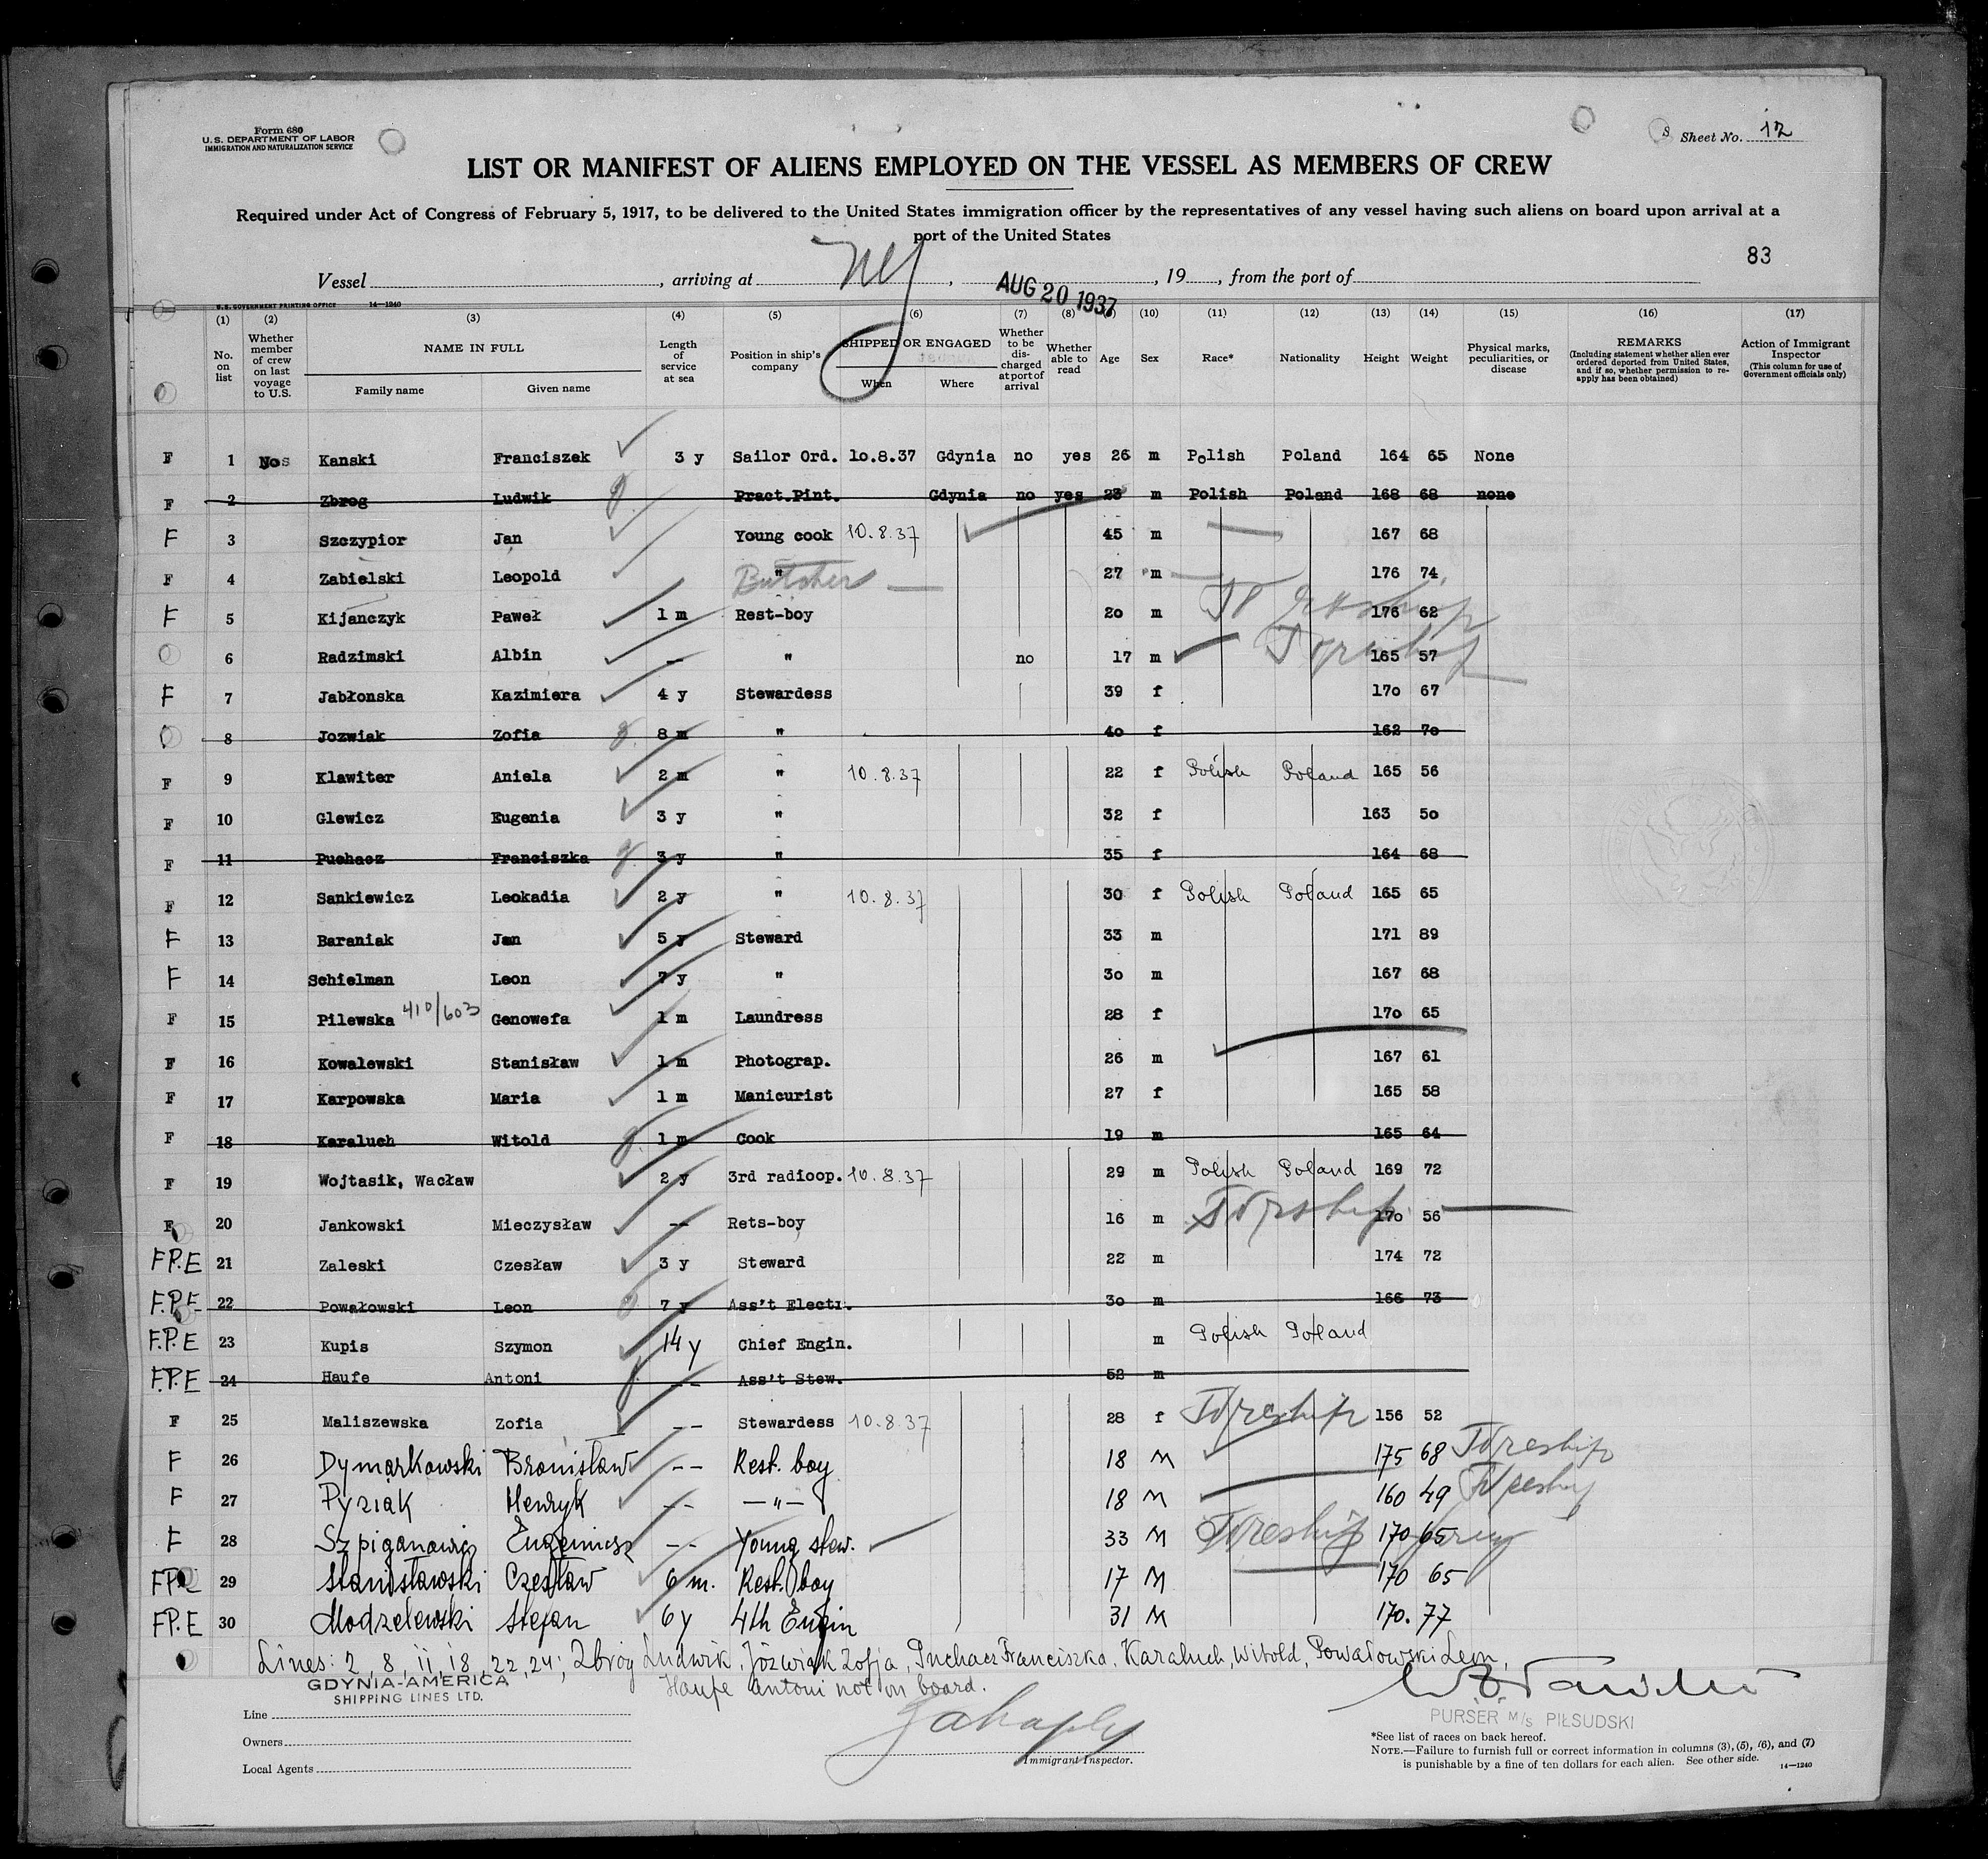 Form 680
U.S. DEPARTMENT OF LABOR
IMMIGRATION AND NATURALIZATION SERVICE
S Sheet No. 12
LIST OR MANIFEST OF ALIENS EMPLOYED ON THE VESSEL AS MEMBERS OF CREW
Required under Act of Congress of February 5, 1917, to be delivered to the United States immigration officer by the representatives of any vessel having such aliens on board upon arrival at a
port of the United States
83
Vessel , arriving at NY , AUG 20 1937 , 19 , from the port of
U.S. GOVERNMENT PRINTING OFFICE 14—1240
(1) (2) (3) (4) (5) (6) (7) (8) (10) (11) (12) (13) (14) (15) (16) (17)
No. on list
Whether member of crew on last voyage to U.S.
NAME IN FULL
Family name Given name
Length of service at sea
Position in ship's company
SHIPPED OR ENGAGED
When Where
Whether to be discharged at port of arrival
Whether able to read
Age
Sex
Race*
Nationality
Height
Weight
Physical marks, peculiarities, or disease
REMARKS
(Including statement whether alien ever ordered deported from United States, and if so, whether permission to reapply has been obtained)
Action of Immigrant Inspector
(This column for use of Government officials only)
F 1 Nos Kanski Franciszek 3 y Sailor Ord. 10.8.37 Gdynia no yes 26 m Polish Poland 164 65 None
F 2 Zbrog Ludwik Pract.Pint. Gdynia no yes 23 m Polish Poland 168 68 none
F 3 Szczypior Jan Young cook 10.8.37 45 m 167 68
F 4 Zabielski Leopold " Butcher 27 m 176 74
F 5 Kijanczyk Paweł 1 m Rest-boy 20 m 176 62
6 Radzimski Albin — " no 17 m 165 57
F 7 Jabłonska Kazimiera 4 y Stewardess 39 f 170 67
8 Jozwiak Zofia 8 m " 40 f 162 70
F 9 Klawiter Aniela 2 m " 10.8.37 22 f Polish Poland 165 56
F 10 Glewicz Eugenia 3 y " 32 f 163 50
F 11 Puchacz Franciszka 3 y " 35 f 164 68
F 12 Sankiewicz Leokadia 2 y " 10.8.37 30 f Polish Poland 165 65
F 13 Baraniak Jan 5 y Steward 33 m 171 89
F 14 Schielman Leon 7 y " 30 m 167 68
F 15 Pilewska 410/603 Genowefa 1 m Laundress 28 f 170 65
F 16 Kowalewski Stanisław 1 m Photograp. 26 m 167 61
F 17 Karpowska Maria 1 m Manicurist 27 f 165 58
F 18 Karaluch Witold 1 m Cook 19 m 165 64
F 19 Wojtasik, Wacław 2 y 3rd radioop. 10.8.37 29 m Polish Poland 169 72
F 20 Jankowski Mieczysław -- Rets-boy 16 m 170 56
F.P.E 21 Zaleski Czesław 3 y Steward 22 m 174 72
F.P.E 22 Powałowski Leon 7 y Ass't Electr. 30 m 166 73
F.P.E 23 Kupis Szymon 14 y Chief Engin. m Polish Poland
F.P.E 24 Haufe Antoni -- Ass't Stew. 52 m
F 25 Maliszewska Zofia -- Stewardess 10.8.37 28 f 1st foreship 156 52
F 26 Dymarkowski Bronisław -- Rest. boy 18 M 175 68
F 27 Pyziak Henryk -- —"— 18 M 160 49
F 28 Szpiganowicz Eugeniusz -- Young stew. 33 M 170 65
29 Stanisławski Czesław 6 m. Rest. boy 17 M 170 65
F.P.E 30 Modzelewski Stefan 6 y 4th Engin 31 M 170. 77
Lines: 2, 8, 11, 18, 22, 24; Zbróg Ludwik, Józwiak Zofja, Puchacz Franciszka, Karaluch, Witold, Powałowski Leon,
Haufe Antoni not on board.
GDYNIA-AMERICA
SHIPPING LINES LTD.
Line
Owners
Local Agents
Immigrant Inspector.
PURSER M/S PIŁSUDSKI
*See list of races on back hereof.
NOTE.—Failure to furnish full or correct information in columns (3), (5), (6), and (7)
is punishable by a fine of ten dollars for each alien. See other side.
14—1240